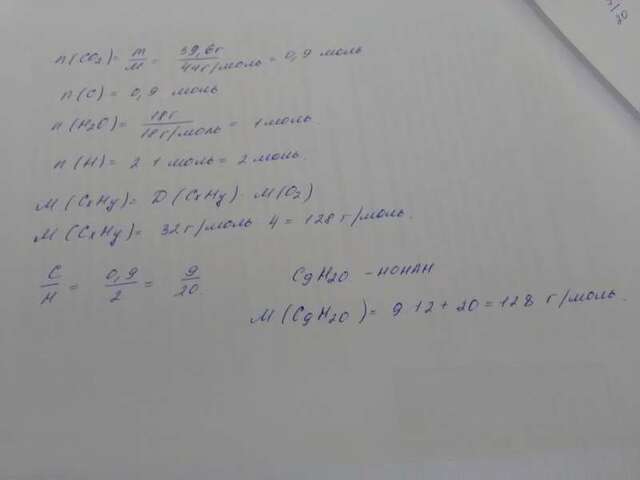 n(CO2)= m/M = 39,6г/44г/моль = 0,9 моль
n(C) = 0,9 моль
n(H2O)= 18г/18г/моль = 1 моль.
n(H) = 2 1 моль = 2 моль.
M(CxHy)= D(CxHy)· M(O2)
M(CxHy)= 32г/моль 4 = 128 г/моль.
C/H = 0,9/2 = 9/20. C9H20 - НОНАН
M(C9H20) = 9 12 + 20 = 128 г/моль.